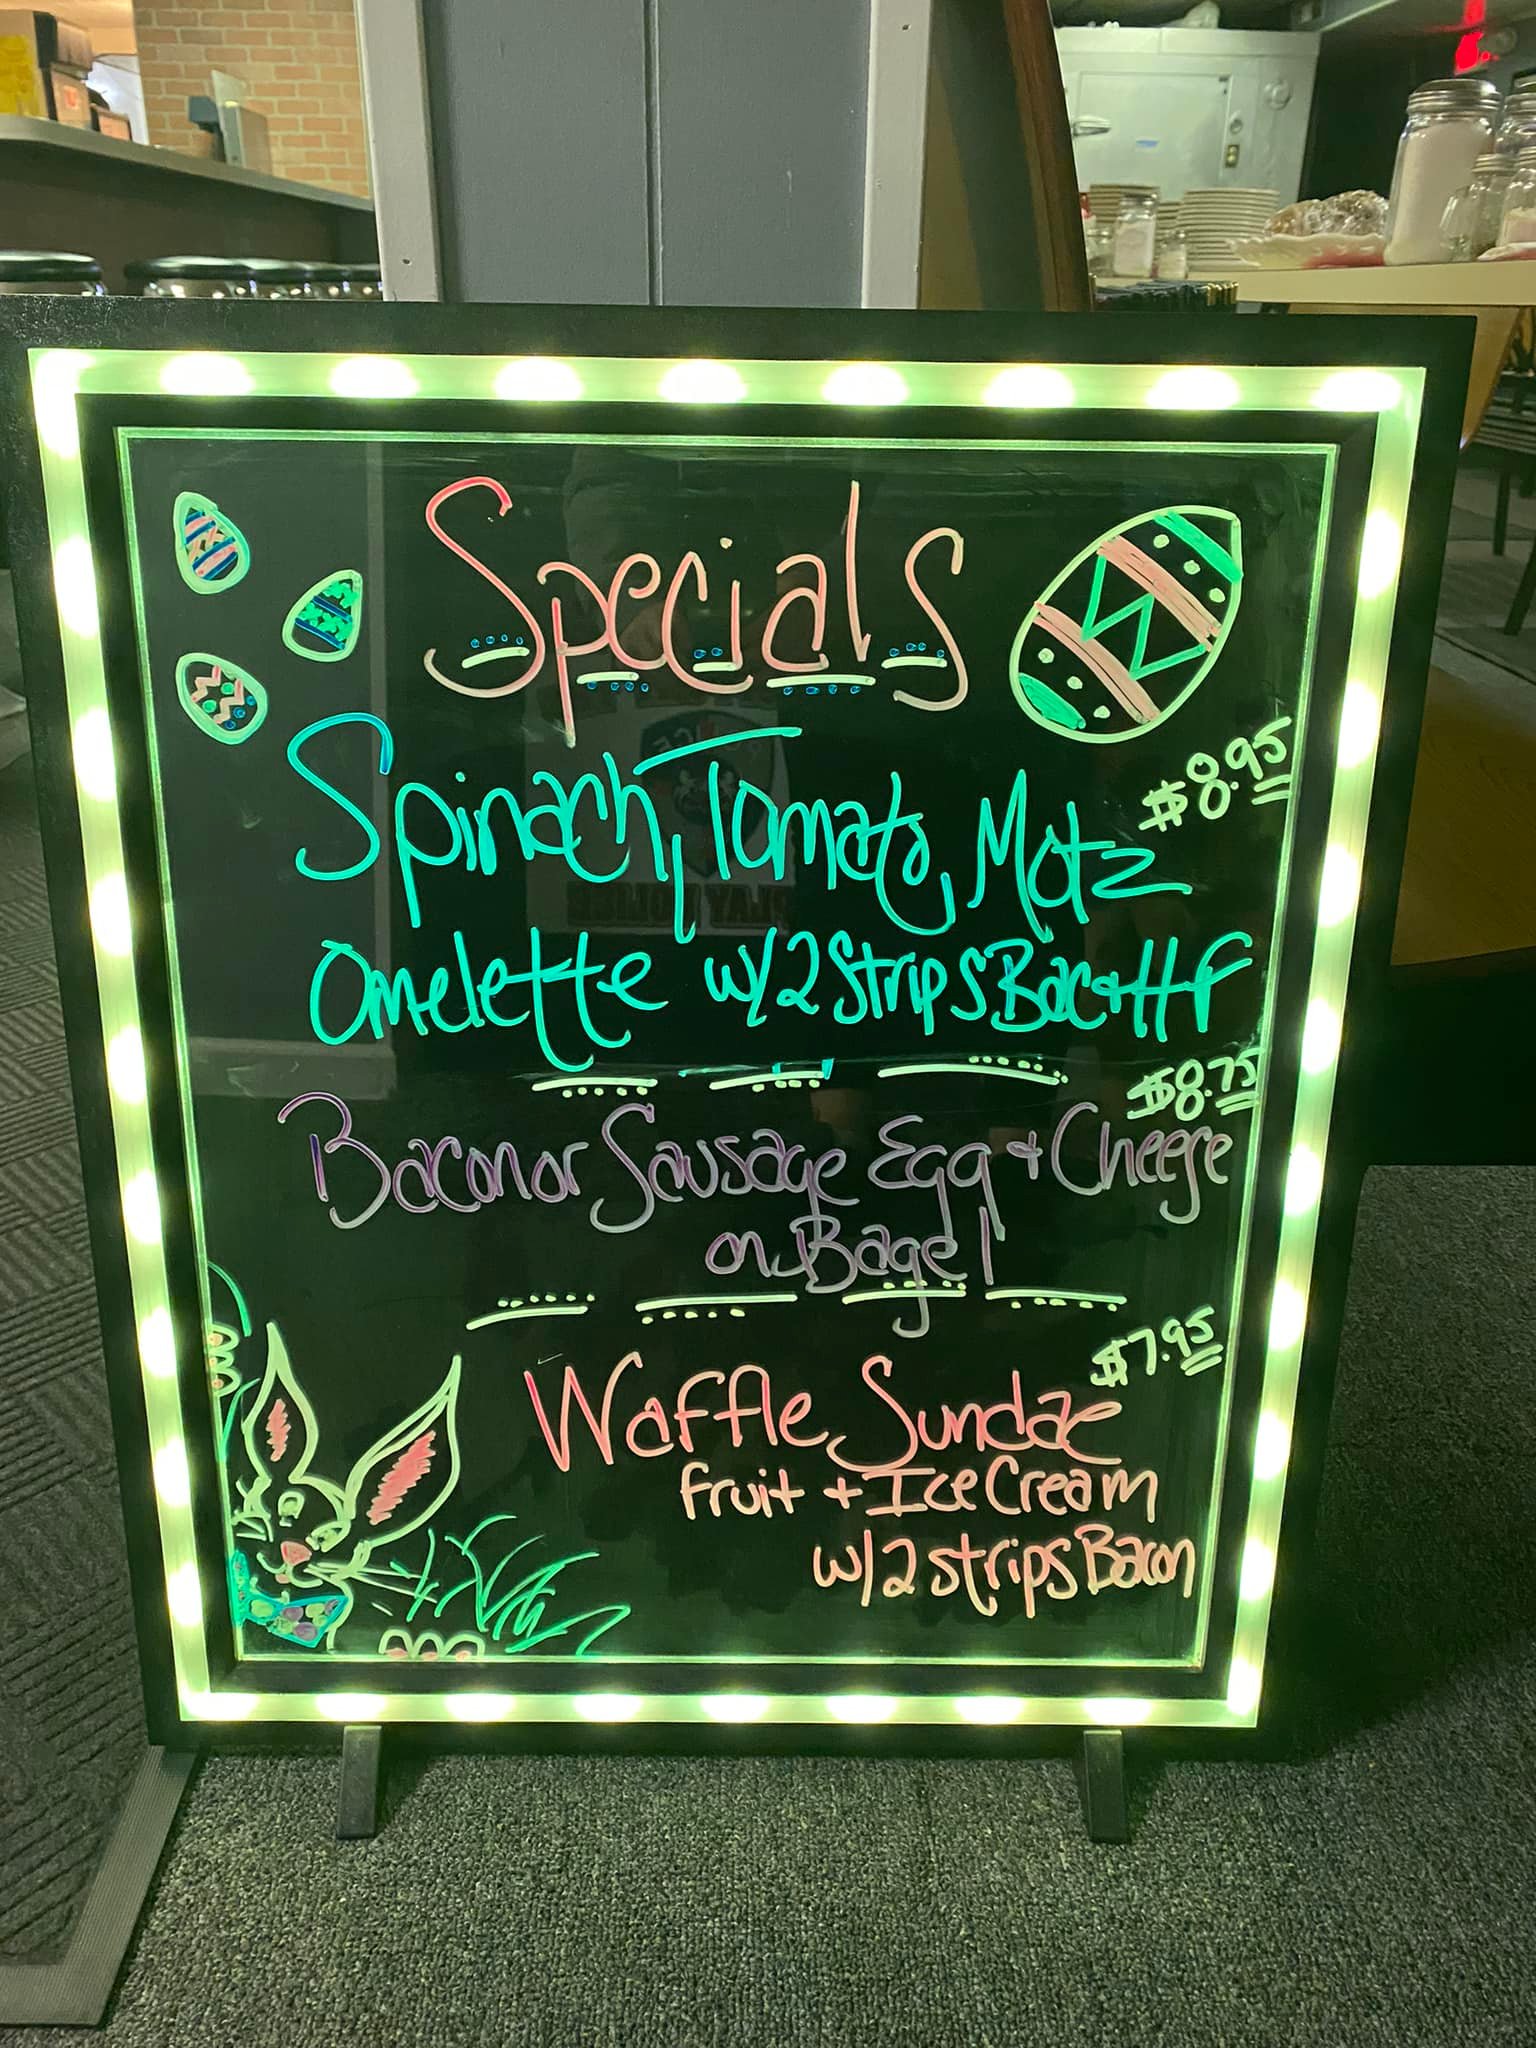 Specials
$8.95
Spinach, Tomato, Motz
Omelette w/2 Strips Bac + HF
$8.75
Bacon or Sausage Egg + Cheese
on Bagel
$7.95
Waffle Sundae
Fruit + Ice Cream
w/2 strips Bacon